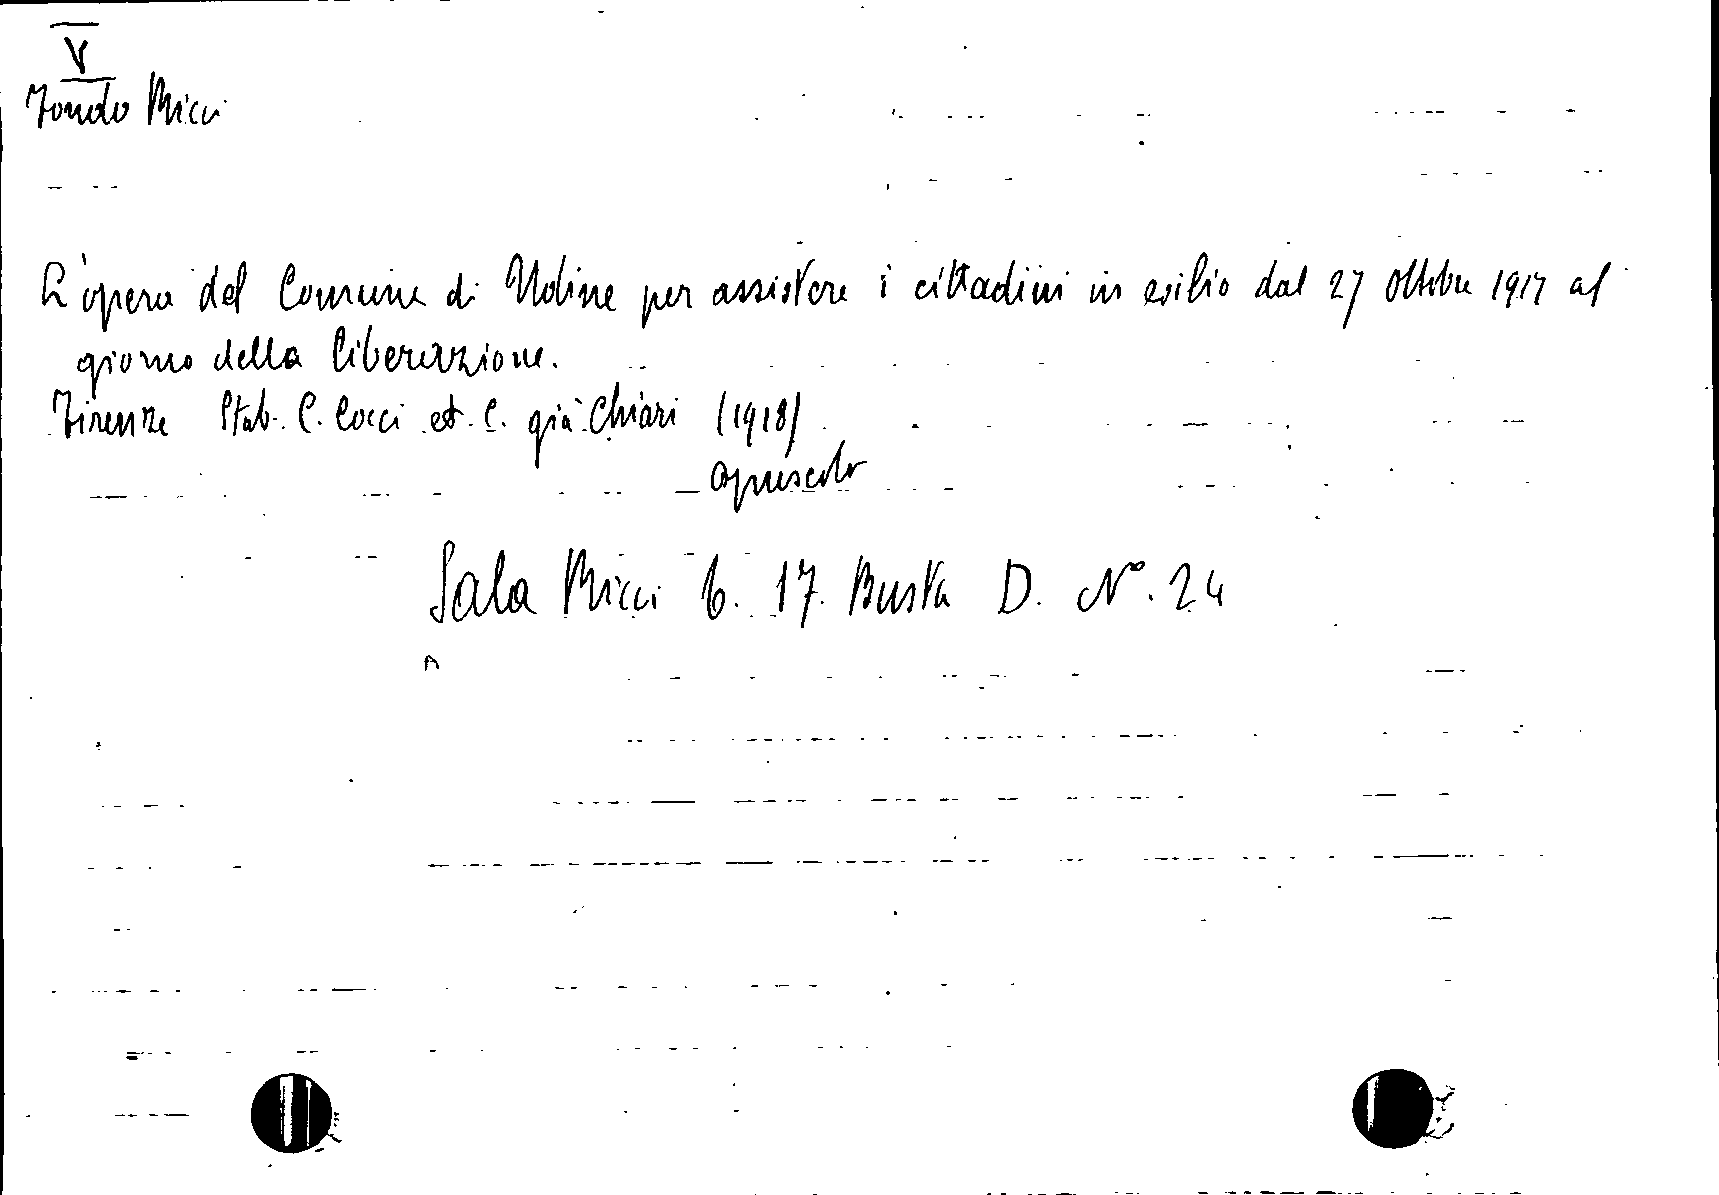 V
Fondo Ricci
L'opera del Comune di Udine per assistere i cittadini in esilio dal 27 Ottobre 1917 al
giorno della liberazione.
Firenze Stab. C. Cocci et C. già Chiari (1918)
opuscolo
Sala Ricci b. 17. Busta D. N°. 24